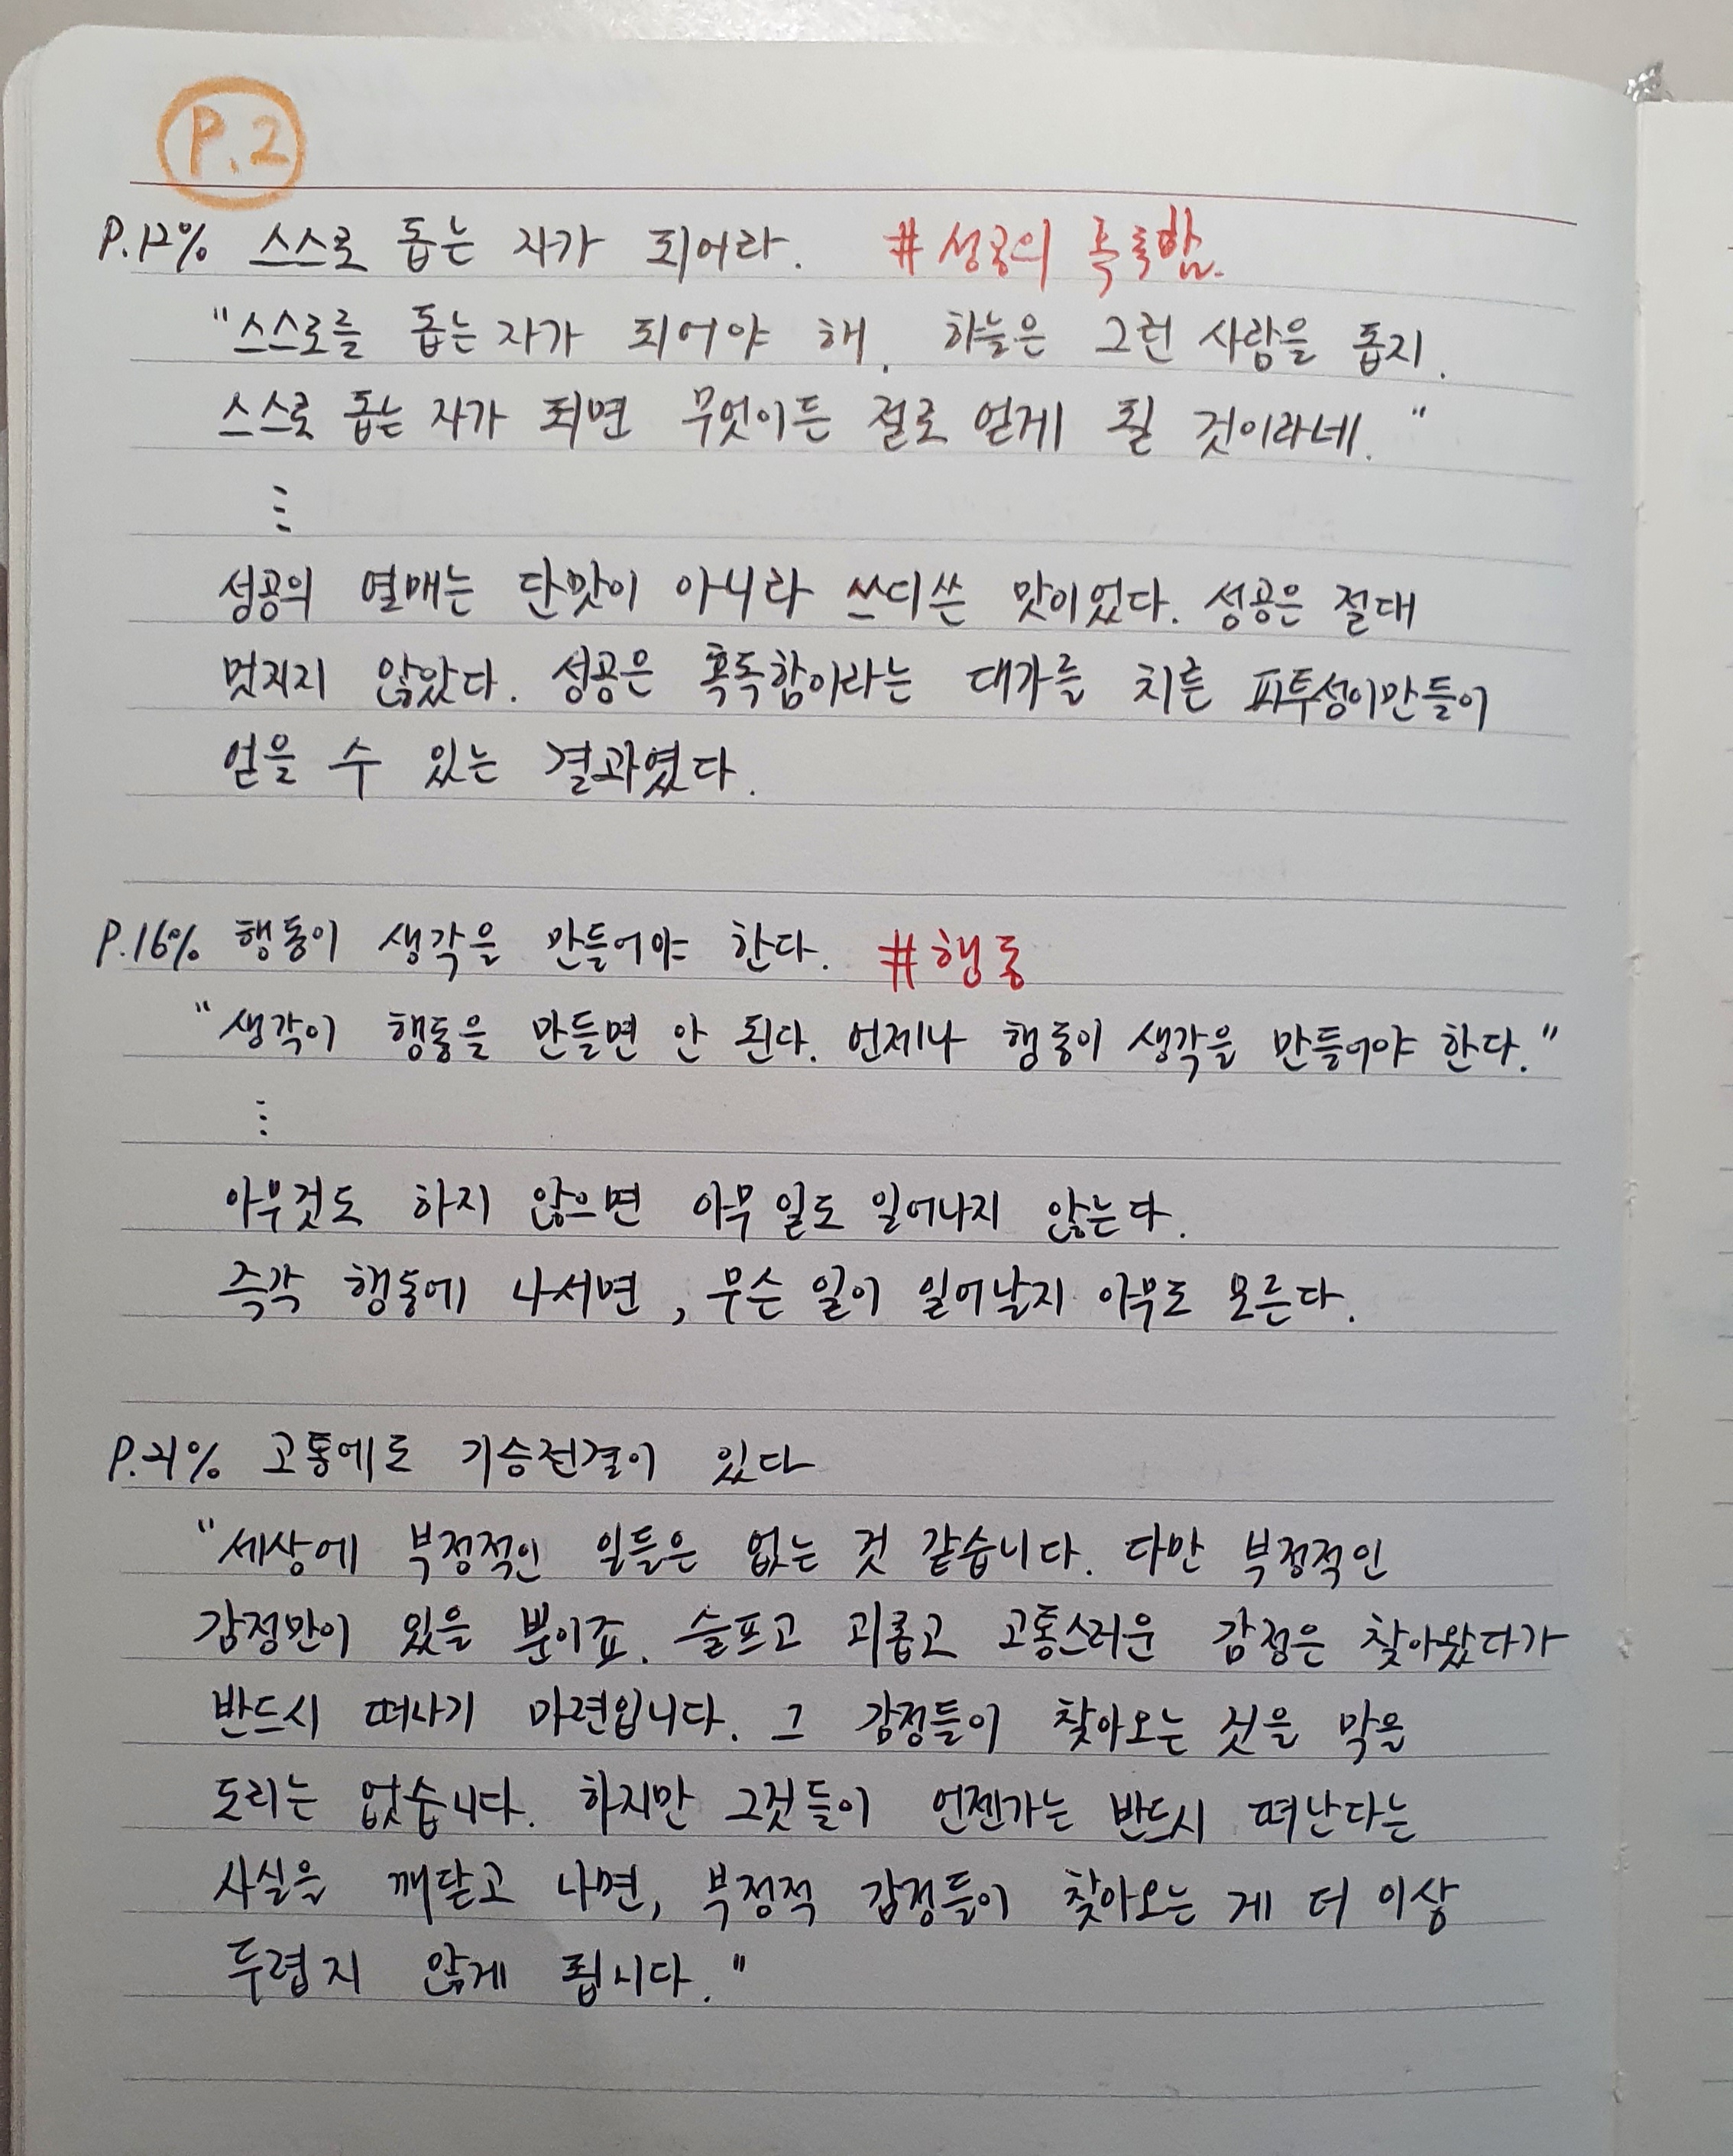 P.2
P.12% 스스로 돕는 자가 되어라. #성공의 혹독함.
"스스로를 돕는 자가 되어야 해. 하늘은 그런 사람을 돕지.
스스로 돕는 자가 되면 무엇이든 절로 얻게 될 것이라네."
⋮
성공의 열매는 단맛이 아니라 쓰디쓴 맛이었다. 성공은 절대
멋지지 않았다. 성공은 혹독함이라는 대가를 치른 피투성이만들이
얻을 수 있는 결과였다.
P.16% 행동이 생각을 만들어야 한다. #행동
"생각이 행동을 만들면 안 된다. 언제나 행동이 생각을 만들어야 한다."
⋮
아무것도 하지 않으면 아무 일도 일어나지 않는다.
즉각 행동에 나서면, 무슨 일이 일어날지 아무도 모른다.
P.21% 고통에도 기승전결이 있다
"세상에 부정적인 일들은 없는 것 같습니다. 다만 부정적인
감정만이 있을 뿐이죠. 슬프고 괴롭고 고통스러운 감정은 찾아왔다가
반드시 떠나기 마련입니다. 그 감정들이 찾아오는 것을 막을
도리는 없습니다. 하지만 그것들이 언젠가는 반드시 떠난다는
사실을 깨닫고 나면, 부정적 감정들이 찾아오는 게 더 이상
두렵지 않게 됩니다."